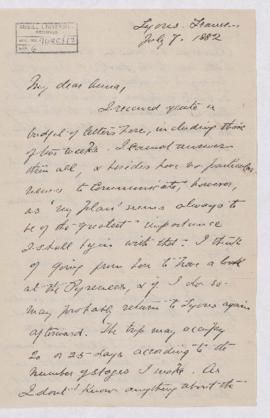 McGILL UNIVERSITY
ARCHIVES
ACC. NO.
REF. 6
Lyons. France.
July 7. 1882
My dear Anna,
I received quite a
budget of letters here, including those
of two weeks. I cannot answer
them all, & besides have no particular
news to communicate, however,
as 'my plan' seems always to
be of the greatest importance
I shall begin with that:- I think
of going from here to have a look
at the Pyrenees, & if I do so
may probably return to Lyons again
afterward. The trip may occupy
20 or 25 days according to the
number of stages I make. As
I don't know anything about the